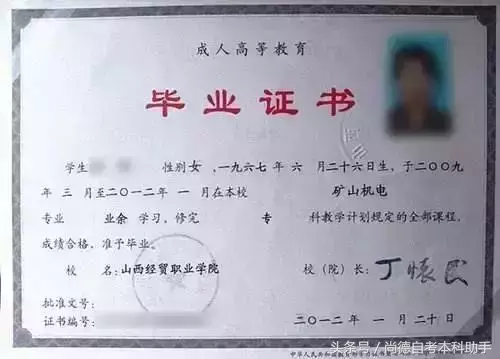 成人高等教育
毕业证书
学生 性别 女 ,一九六七年 六 月二十六日生,于二〇〇九
年 三 月至二〇一二年 一 月在本校 矿山机电
专业 业余 学习,修完 专 科教学计划规定的全部课程,
成绩合格,准予毕业。
校 名:山西经贸职业学院 校(院)长:
批准文号:
证书编号:
二〇一二年 一 月二十日
头条号/尚德自考本科助手